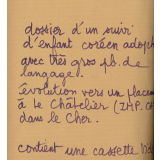 dossier d'un suivi
d'enfant coréen adop
avec très gros pb. de
langage.
évolution vers un place
à le Châtelier (IMP.
dans le Cher.
contient une cassette